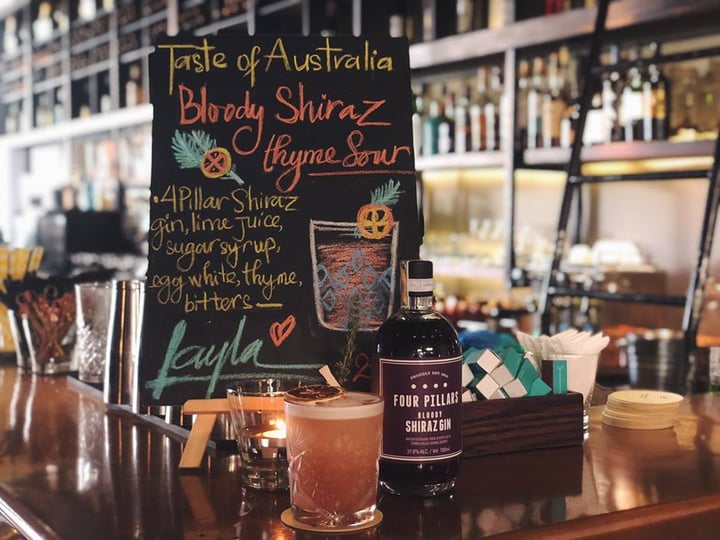 Taste of Australia
Bloody Shiraz
thyme Sour
• 4 Pillar Shiraz
gin, lime juice,
sugar syrup,
egg white, thyme,
bitters —
Layla
FOUR PILLARS
BLOODY
SHIRAZ GIN
37.8% ALC. / Vol 700ml